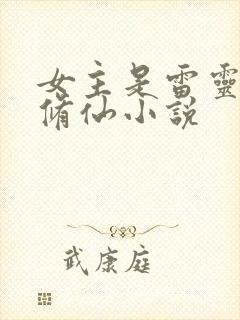 女主是雷靈
脩仙小說
武康庭